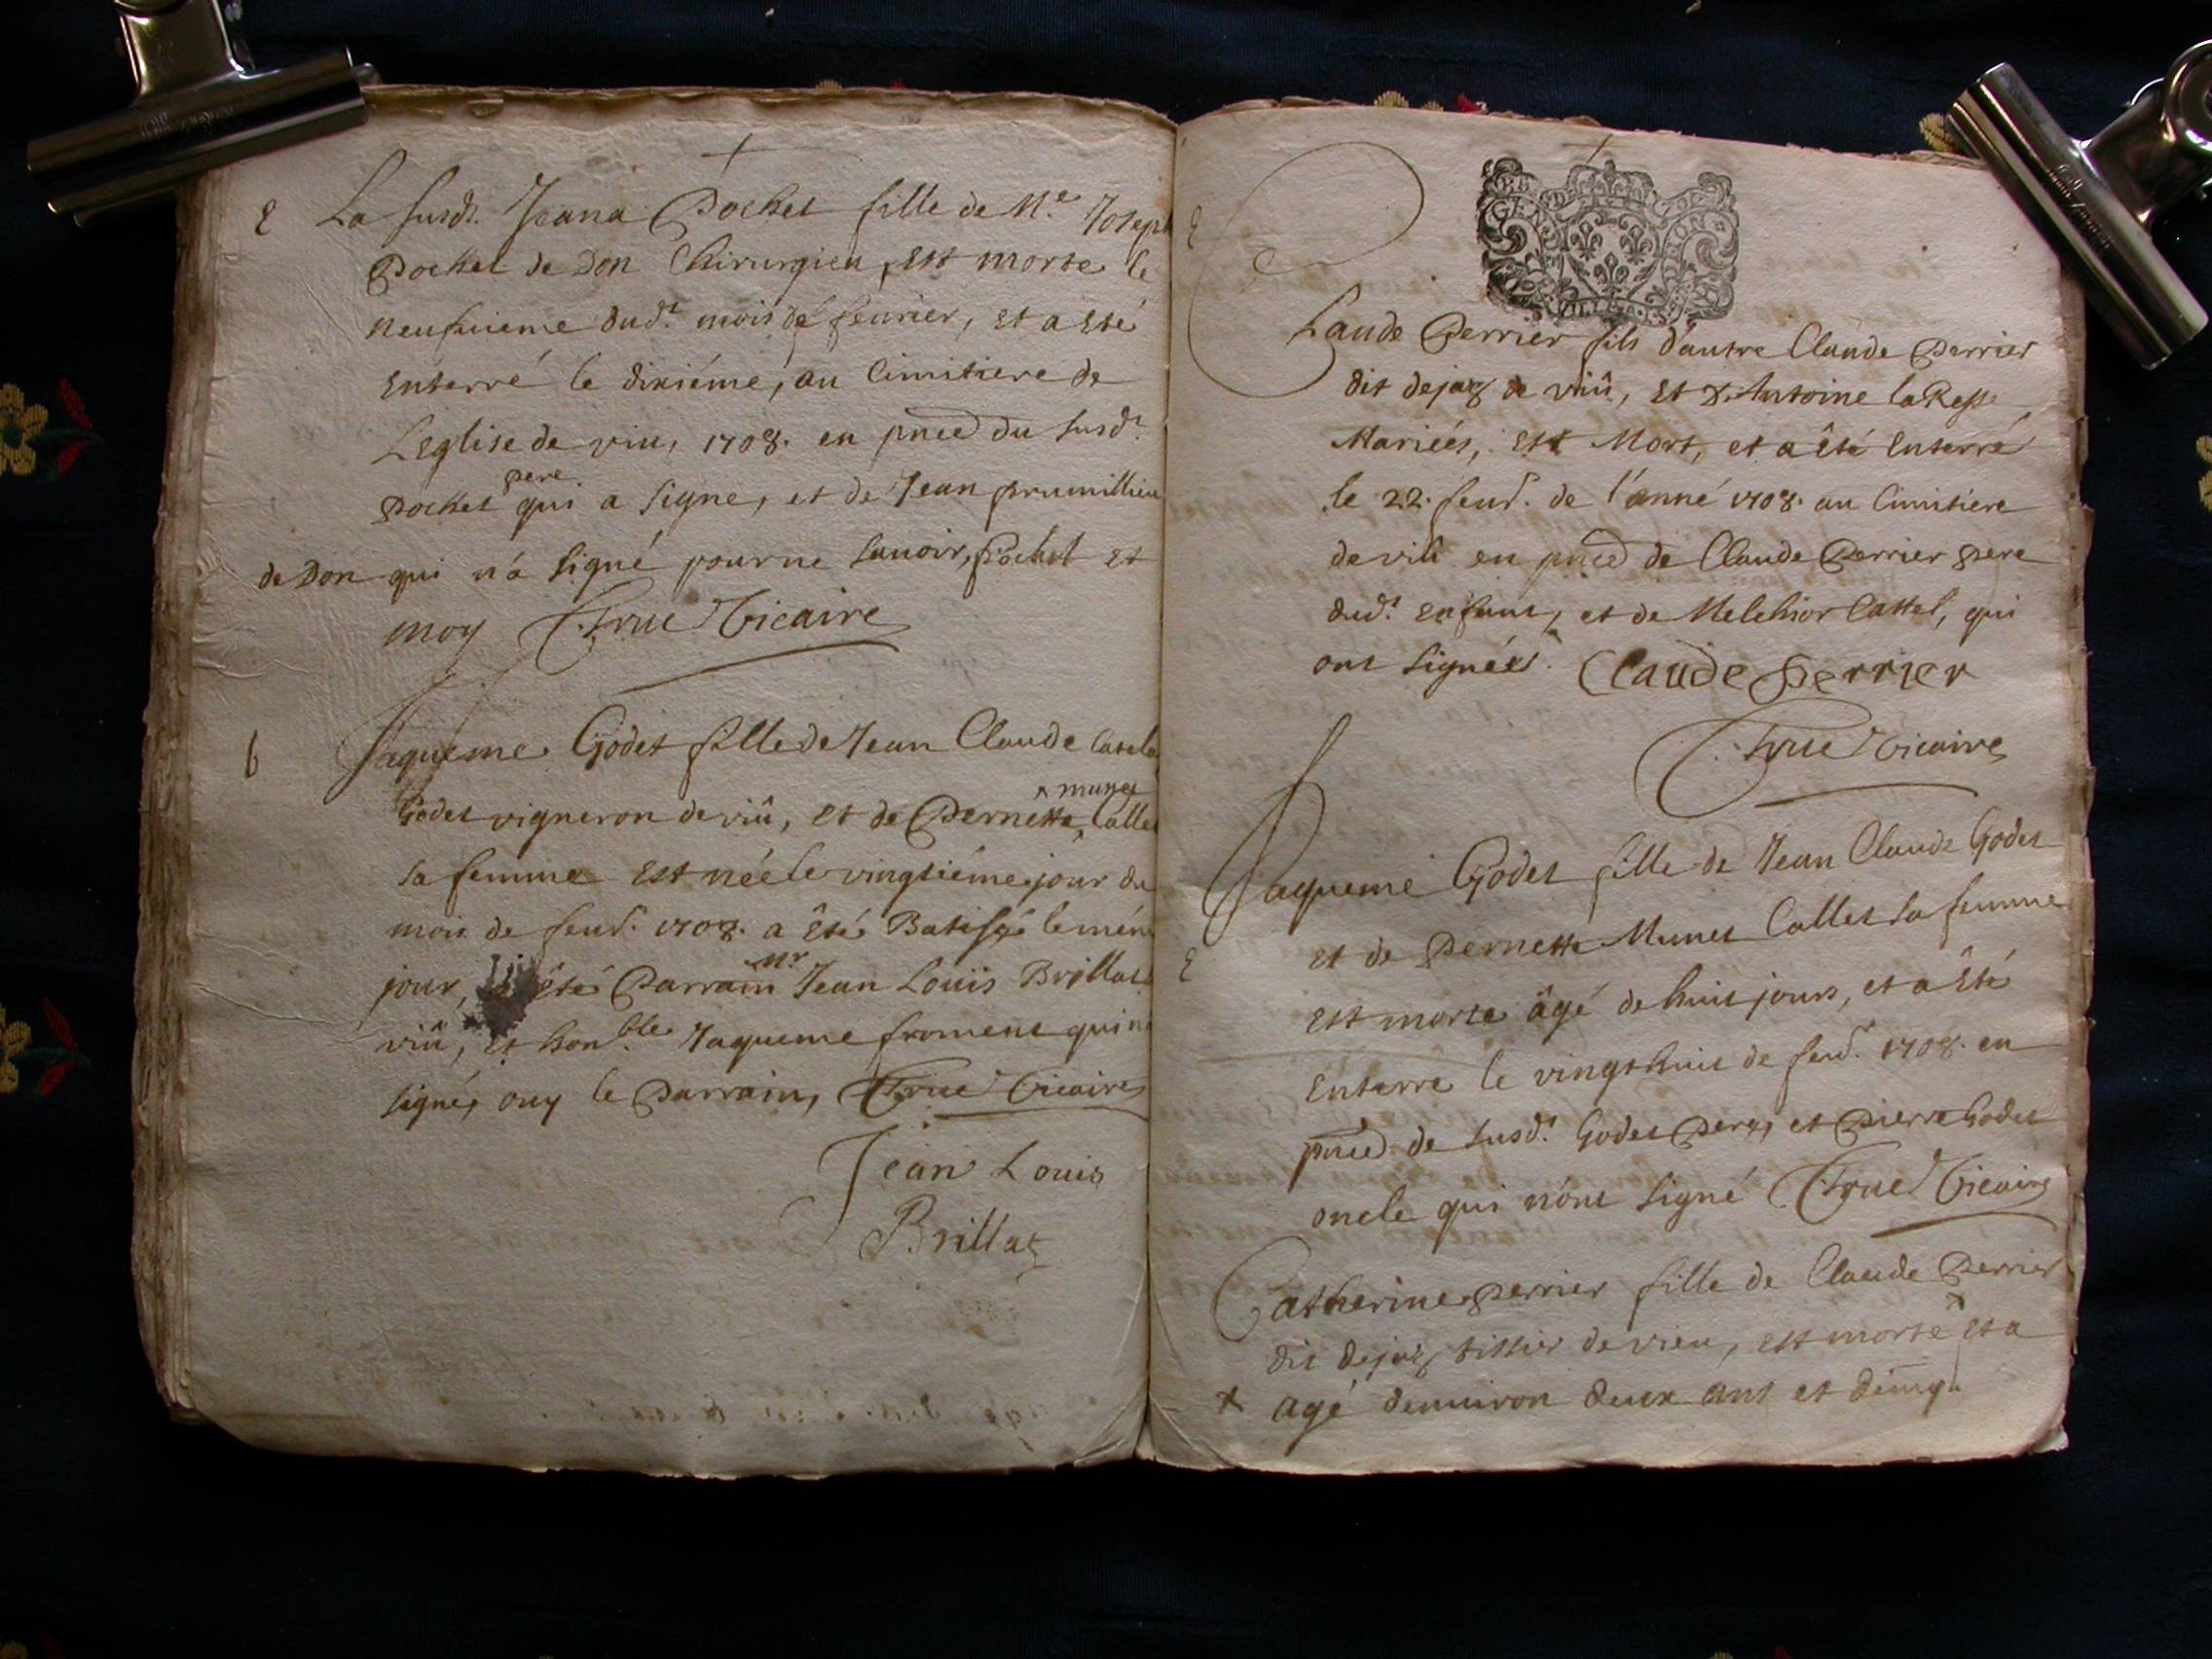 E La susdt. Jeana Pochet fille de Me. Joseph
Pochet de Don Chirurgien, est morte le
neufuieme dudt. mois de feurier, et a esté
enterré le dixiéme, au Cimitiere de
L'eglise de viu, 1708. en pnce du susdt.
pere
Pochet qui a signe, et de Jean prumillieu
de Don qui n'a signé pour ne sauoir, Pochet et
moy Trux Vicaire
b Jaqueme Godet fille de Jean Claude
munet
Godet vigneron de viû, et de Pernette, Callet
sa femme est née le vingtiéme jour du
mois de feur. 1708. a êté Batisée le mém
jour, êté Parrain Mr Jean Louïs Brillat
viû, et honble. Jaqueme froment qui n
signé, ouy le Parrain, Trux Vicaire
Jean Louis
Brillat
E
GEN
Claude Perrier fils d'autre Claude Perrier
dit dejaz de viû, et d'Antoine la
Mariées, est Mort, et a êté enterré
le 22. feur. de l'anné 1708. au Cimitiere
de viû en pnce de Claude Perrier pere
dudt. enfant, et de Melchior Cattet, qui
ont signées. Claude perrier
Trux Vicaire
Jaqueme Godet fille de Jean Claude Godet
et de Pernette Munet Callet sa femme
E est morte âgé de huit jours, et a êté
enterre le vingt huit de feur. 1708. en
pnce de susdt. Godet Pere, et Pierre Godet
oncle qui n'ont signé Trux Vicaire
Catherine perrier fille de Claude Perrier
dit dejaz tissier de vieu, est morte et a
x agé d'enuiron deux ans et demy